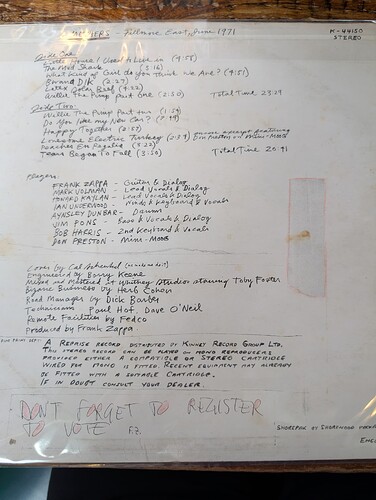 MOTHERS - Fillmore East, June 1971
K-44150
STEREO
Side One
Little House I Used to Live in (4:58)
The Mud Shark (5:16)
What Kind of Girl do you think we Are? (4:51)
Bwana Dik (2:27)
Latex Solar Beef (4:22)
Willie The Pimp Part One (2:50) Total Time 23:19
Side Two:
Willie The Pimp Part two (1:54)
Do You Like my New Car?
Happy Together (2:57)
Lonesome Electric Turkey (2:33) excerpt featuring Don Preston on Mini-Moog
Peaches En Regalia (3:22)
Tears Began To Fall (2:50) Total Time 20:41
Players:
FRANK ZAPPA - Guitar & Dialog
MARK VOLMAN - Lead Vocals & Dialog
HOWARD KAYLAN - Lead Vocals & Dialog
IAN UNDERWOOD - Winds & Keyboard & Vocals
AYNSLEY DUNBAR - Drums
JIM PONS - Bass & Vocals & Dialog
BOB HARRIS - 2nd Keyboard & Vocals
DON PRESTON - Mini-Moog
Cover by Cal Schenkel
Engineered by Barry Keene
Mixed and Mastered at Whitney Studios starring Toby Foster
Bizarre Business by Herb Cohen
Road Manager by Dick Barber
Technicians Paul Hof, Dave O'Neil
Remote Facilities by Fedco
Produced by Frank Zappa
FINE PRINT DEPT:
A REPRISE RECORD DISTRIBUTED BY KINNEY RECORD GROUP LTD.
THIS STEREO RECORD CAN BE PLAYED ON MONO REPRODUCERS
PROVIDED EITHER A COMPATIBLE OR STEREO CARTRIDGE
WIRED FOR MONO IS FITTED. RECENT EQUIPMENT MAY ALREADY
BE FITTED WITH A SUITABLE CARTRIDGE.
IF IN DOUBT CONSULT YOUR DEALER.
DON'T FORGET TO REGISTER
TO VOTE F.Z.
SHOREPAK BY SHOREWOOD